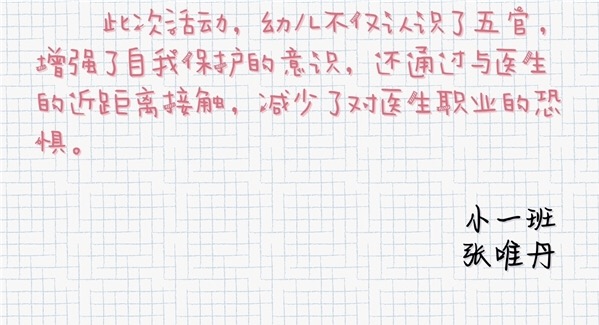 此次活动，幼儿不仅认识了五官，
增强了自我保护的意识，还通过与医生
的近距离接触，减少了对医生职业的恐
惧。
小一班
张唯丹